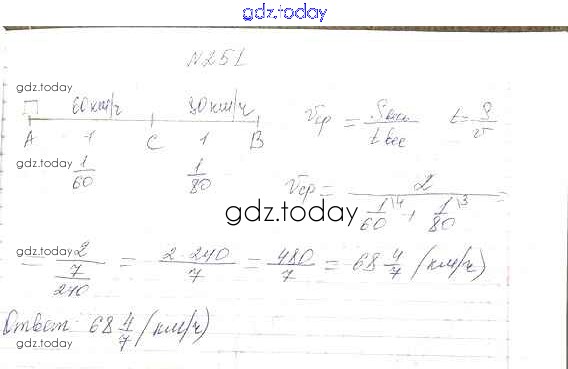 gdz.today
N251
gdz.today
60км/ч 80км/ч
A 1 C 1 B
Vср = Sвсь / tвсе t = S/v
gdz.today
1/60 1/80
Vср = 2 / (1/60\4 + 1/80\3) =
gdz.today
gdz.today
= 2 / (7/240) = 2·240/7 = 480/7 = 68 4/7 (км/ч)
Ответ: 68 4/7 (км/ч)
gdz.today